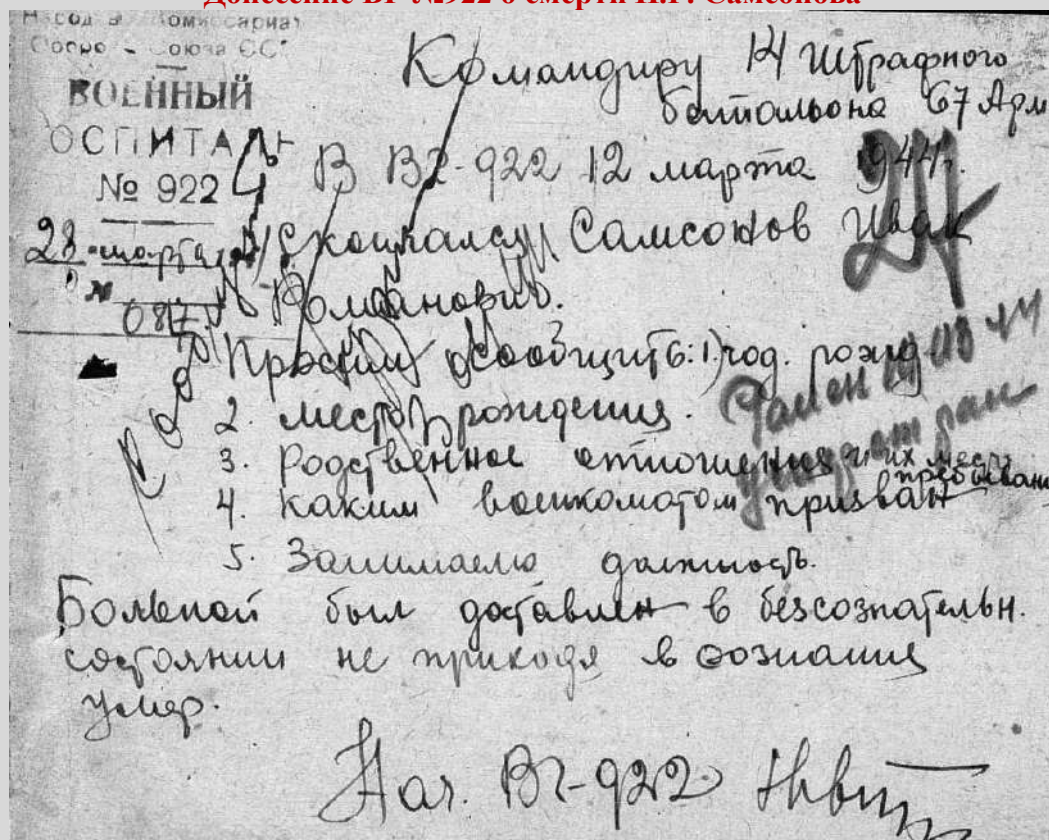 Донесение ВГ №922 о смерти И.Р. Самсонова
ВОЕННЫЙ
ОСПИТАЛЬ
№ 922
28 марта
№
Командиру 14 штрафного
батальона 67 Арм
В ВГ-922 12 марта 1944г.
скончался Самсонов Иван
Романович.
Просим сообщить: 1) год. рожд
2. место рождения.
3. Родственное отношения и их место
пребывани
4. каким военкоматом призван
5. Занимаемо должность.
Больной был доставлен в безсознательн.
состоянии не приходя в сознания
умер.
Нач. ВГ-922